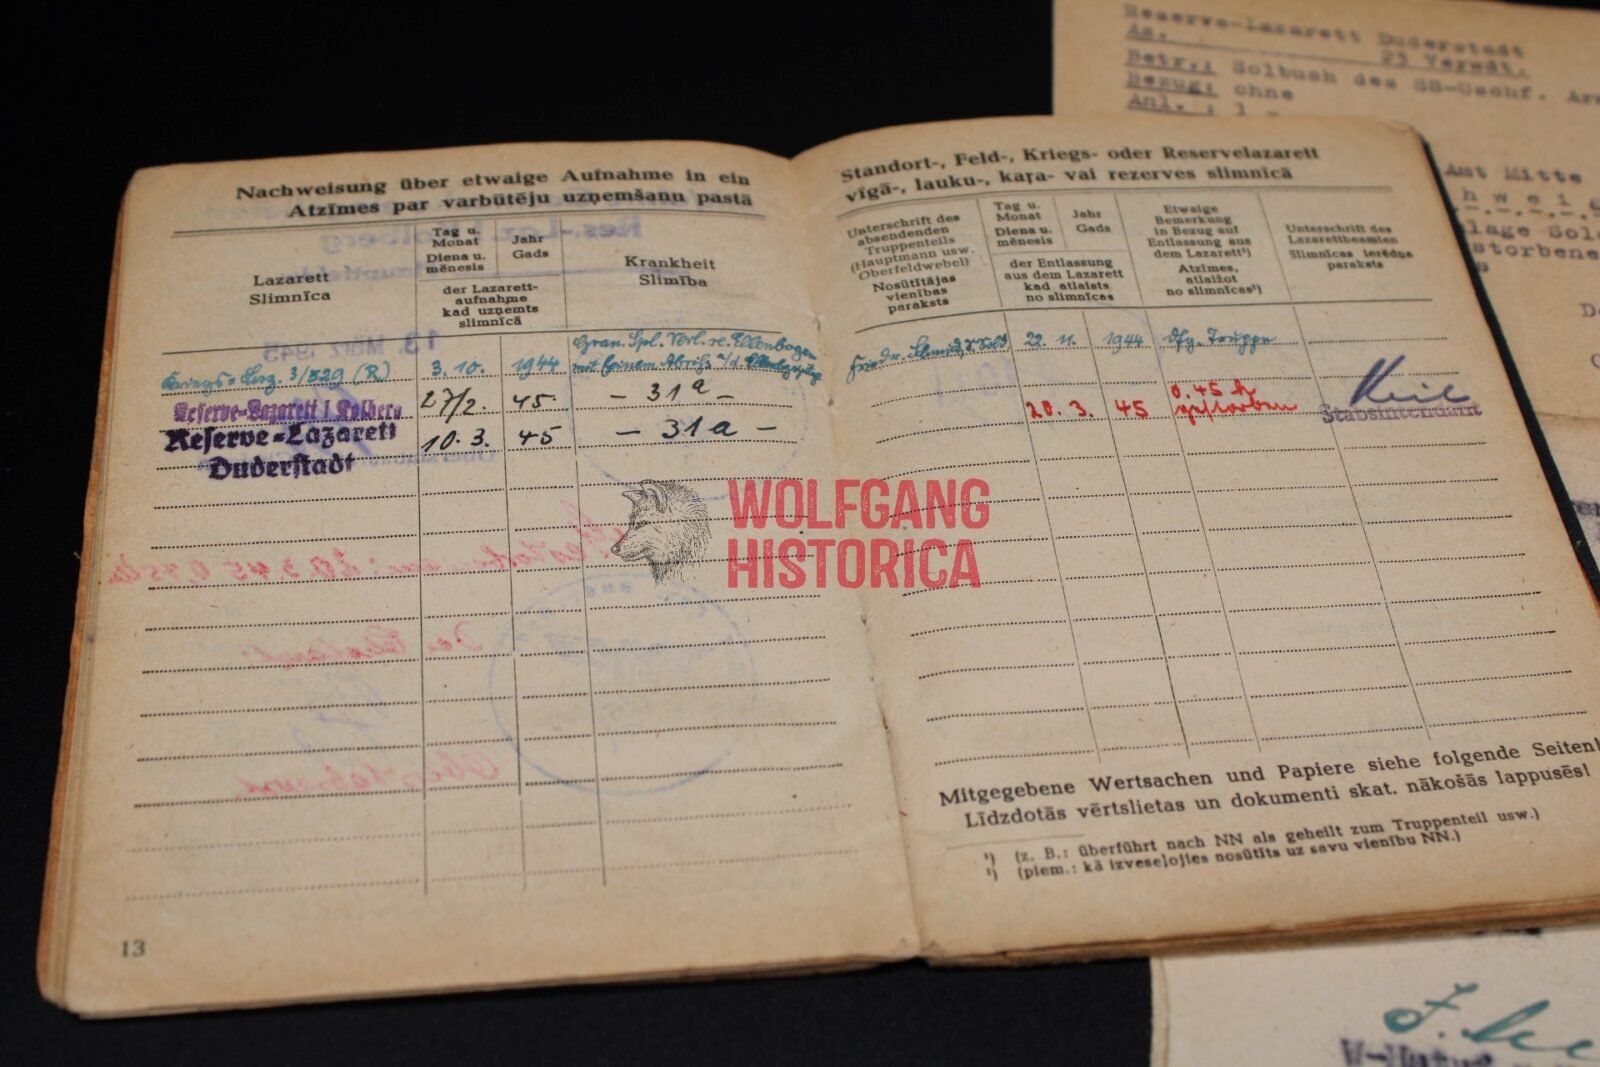 Reserve-Lazarett Duderstadt
Az. 23 Verwdt.
Betr.: Solbuch des SS-Uschf.
Bezug: ohne
Anl. : 1
Amt Mitte
h w e i g
lage Sol
storbene
Nachweisung über etwaige Aufnahme in ein
Atzīmes par varbūtēju uzņemšanu pastā
Lazarett
Slimnīca
Tag u.
Monat
Diena u.
mēnesis
Jahr
Gads
der Lazarett-
aufnahme
kad uzņemts
slimnīcā
Krankheit
Slimība
Kriegs-Laz. 3/529 (R) 3. 10. 1944 Gran. Spl. Verl. re. Ellenbogen
mit kleinem Abriß
Reserve-Lazarett I Kolberg 27/2. 45. – 31a –
Reserve-Lazarett 10. 3. 45 – 31a –
Duderstadt
13. März 1945
13
Standort-, Feld-, Kriegs- oder Reservelazarett
vīgā-, lauku-, kaŗa- vai rezerves slimnīcā
Unterschrift des
absendenden
Truppenteils
(Hauptmann usw.
Oberfeldwebel)
Nosūtītājas
vienības
paraksts
Tag u.
Monat
Diena u.
mēnesis
Jahr
Gads
der Entlassung
aus dem Lazarett
kad atlaists
no slimnīcas
Etwaige
Bemerkung
in Bezug auf
Entlassung aus
dem Lazarett¹)
Atzīmes,
atlaižot
no slimnīcas¹)
Unterschrift des
Lazarettbeamten
Slimnīcas ierēdņa
paraksts
Friedr. Schmidt 22. 11. 1944 Truppe
20. 3. 45 0.45 h
gestorben
Keil
Stabsintendant
WOLFGANG
HISTORICA
Mitgegebene Wertsachen und Papiere siehe folgende Seiten!
Līdzdotās vērtslietas un dokumenti skat. nākošās lappusēs!
¹) (z. B.: überführt nach NN als geheilt zum Truppenteil usw.)
¹) (piem.: kā izveseļojies nosūtīts uz savu vienību NN.)